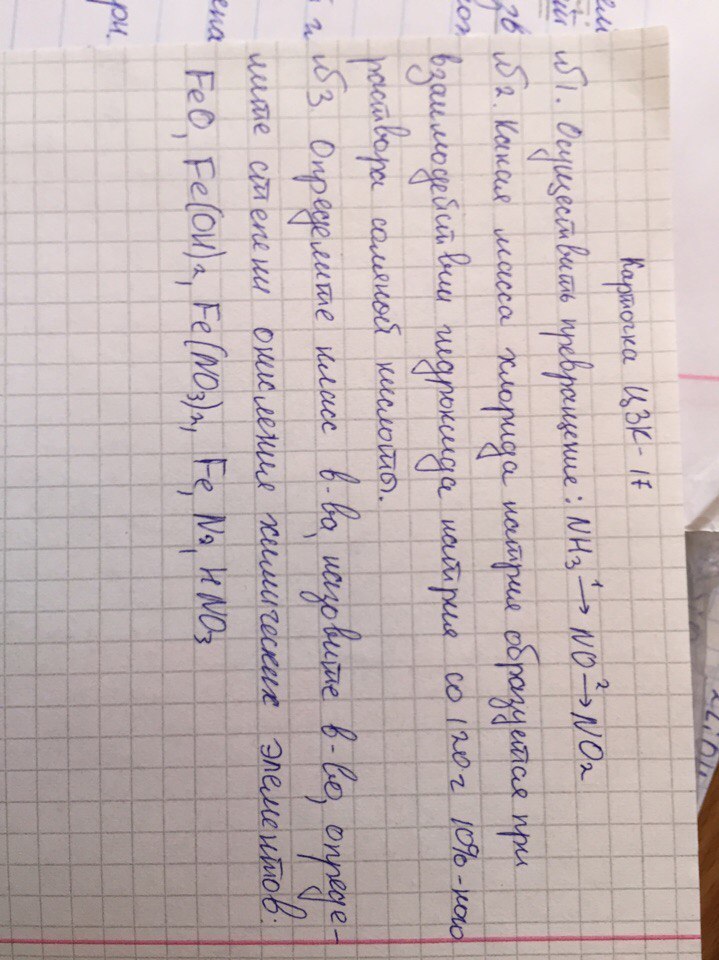 Карточка ЦЗК-17
№1. Осуществить превращение: NH₃ ¹→ NO ²→ NO₂
№2. Какая масса хлорида натрия образуется при
взаимодействии гидроксида натрия со 120г 10%-ного
раствора соляной кислоты.
№3. Определите класс в-ва, назовите в-во, опреде-
лите степени окисления химических элементов.
FeO, Fe(OH)₂, Fe(NO₃)₂, Fe, N₂, HNO₃